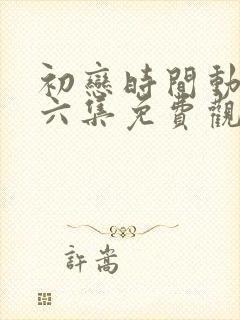 初戀時間動
六集免費觀
許嵩